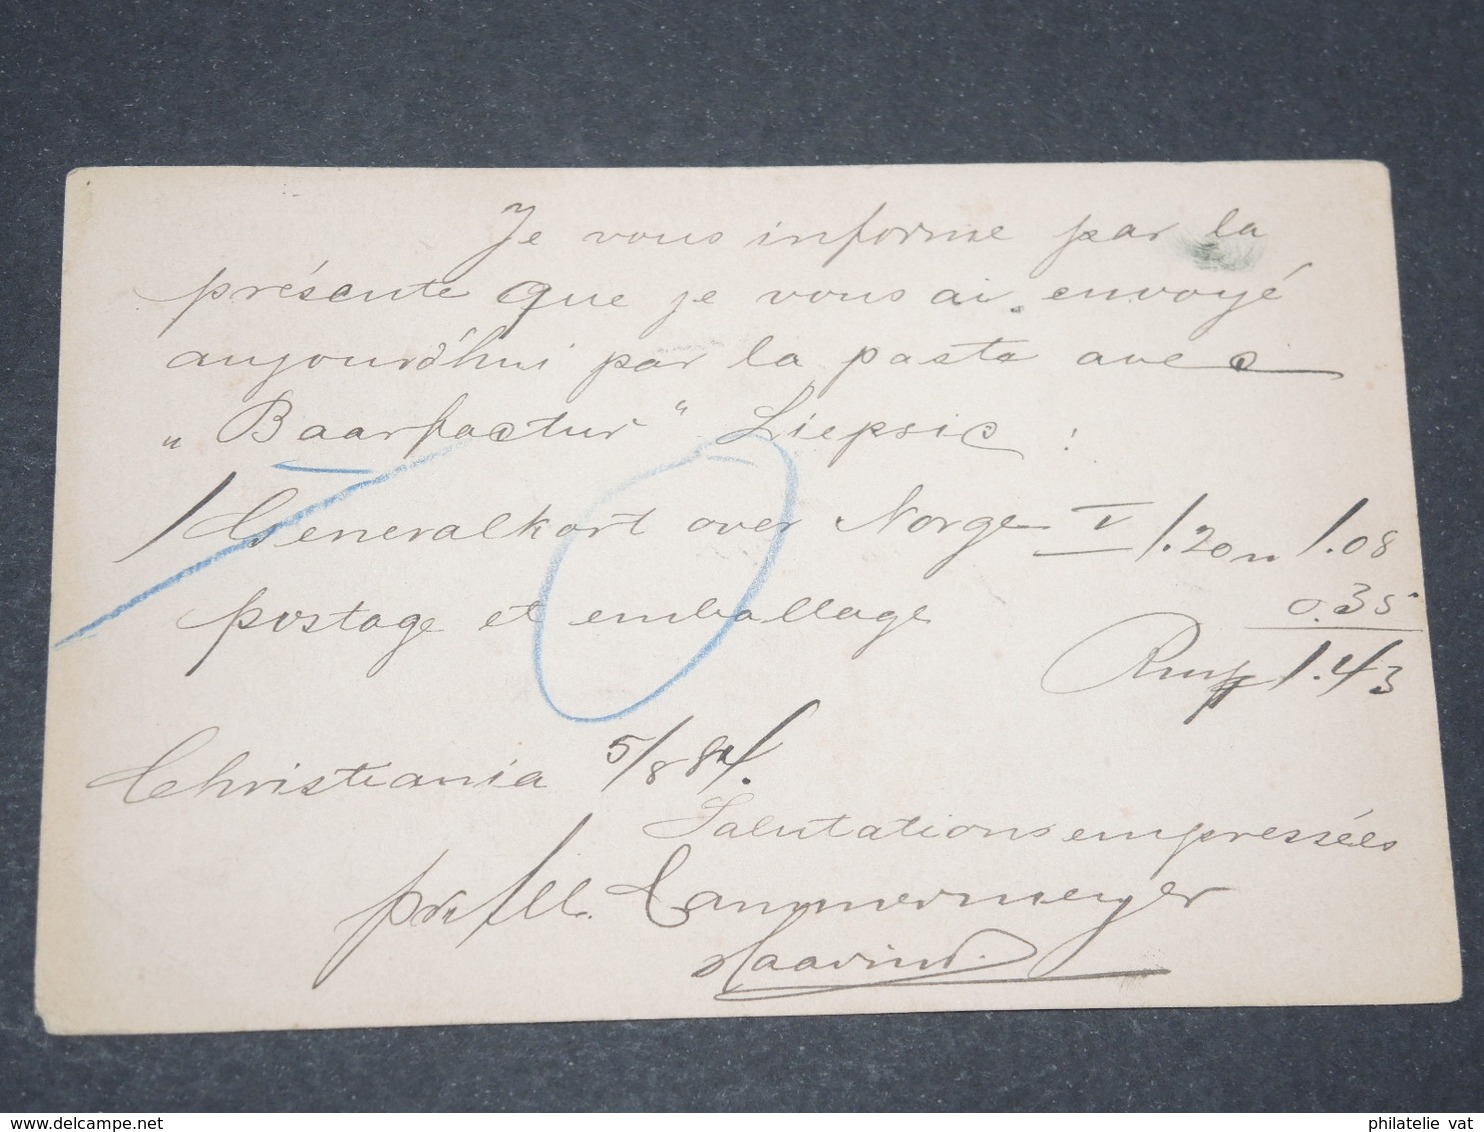 Je vous informe par la
présente que je vous ai envoyé
aujourd'hui par la poste avec
„Baarfactur" Liepsic :
1 Generalkort over Norge I 1.20 n 1.08
postage et emballage 0.35
1.43
Christiania 5/8 84.
Salutations empressées
pr Alb. Cammermeyer
Haavind.
philatelie vat